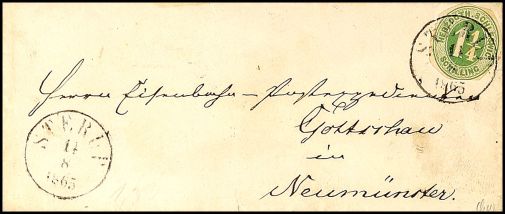 HERZOGTH. SCHLESWIG
1¼
SCHILLING
1865
Herrn Eisenbahn-Postexpedient
Gottschau
in
Neumünster.
STERUP
11
8
1865